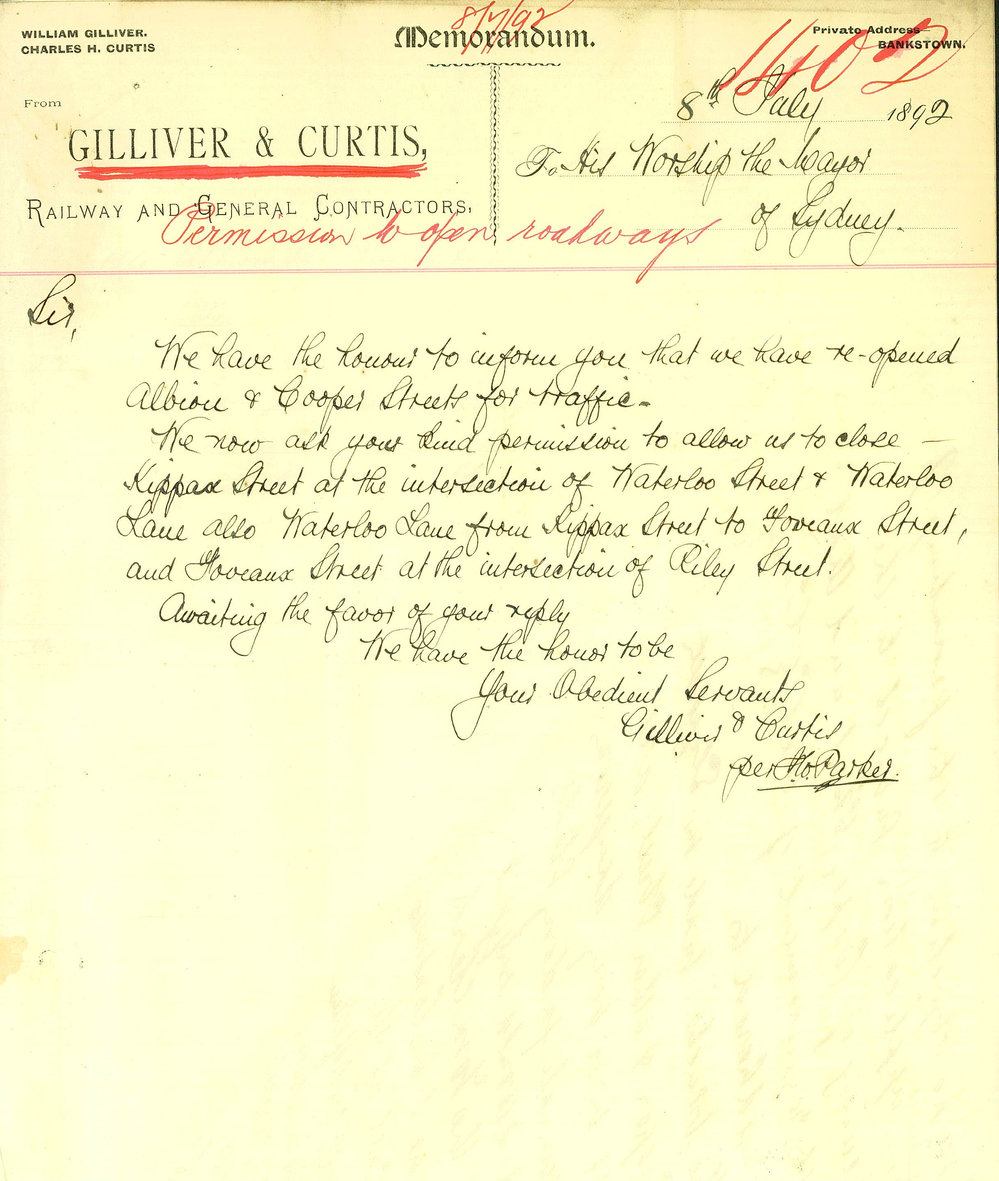 8/7/92
WILLIAM GILLIVER.
CHARLES H. CURTIS
Memorandum.
Private Address—
BANKSTOWN.
1402
From
8th July 1892
GILLIVER & CURTIS,
To His Worship the Mayor
RAILWAY AND GENERAL CONTRACTORS,
of Sydney.
Permission to open roadways
Sir,
We have the honour to inform you that we have re-opened
Albion & Cooper Streets for traffic-
We now ask your kind permission to allow us to close —
Kippax Street at the intersection of Waterloo Street & Waterloo
Lane also Waterloo Lane from Kippax Street to Foveaux Street,
and Foveaux Street at the intersection of Riley Street.
Awaiting the favor of your reply
We have the honor to be
Your Obedient Servants
Gilliver & Curtis
per Parker.